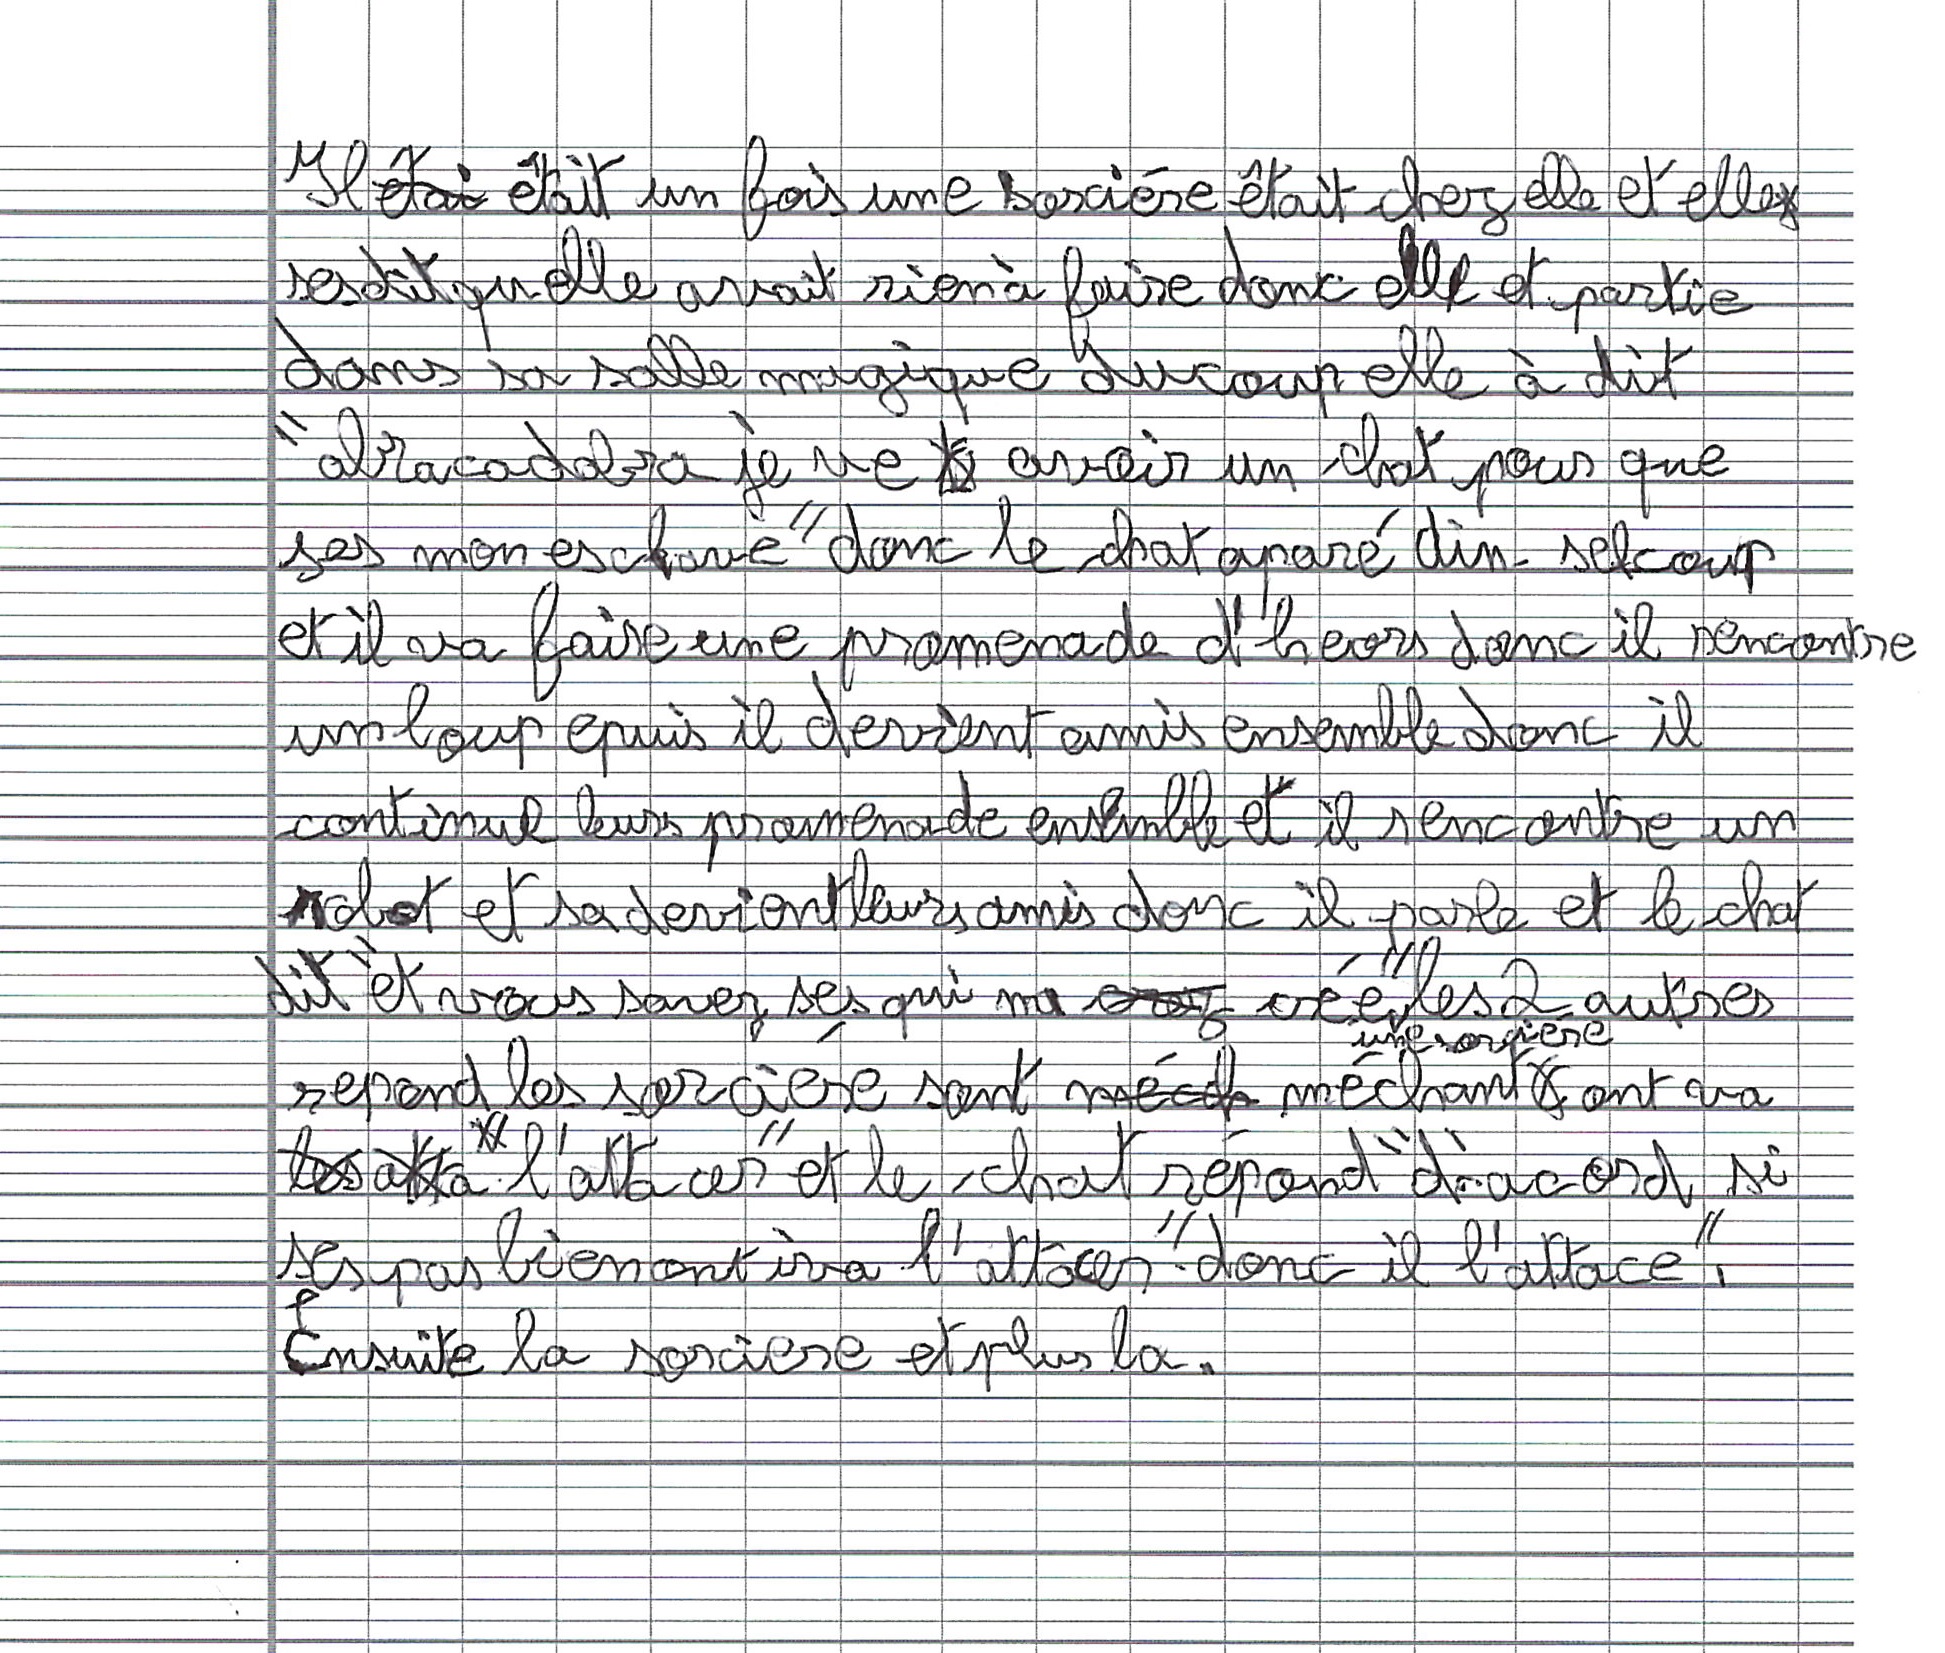 Il était un fois une sorciére était chez elle et elle
ses dit qu elle avait rien à faire donc elle et partie
dans sa salle magique ducoup elle à dit
"abracadabra je ve avoir un chat pour que
ses mon esclave" donc le chat aparé din selcoup
et il va faire une promenade d'heors donc il rencontre
un loup epuis il devient amis ensemble donc il
continue leurs promenade ensemble et il rencontre un
robot et sa devient leurs amis donc il parle et le chat
dit "et vous savez ses qui ma créé" les 2 autres
une sorciére
répond les sorciére sont méchant ont va
l'attacer" et le chat répond "d'acord si
ses pas bien ont ira l'attacer" donc il l'attace".
Ensuite la sorciere et plus la.